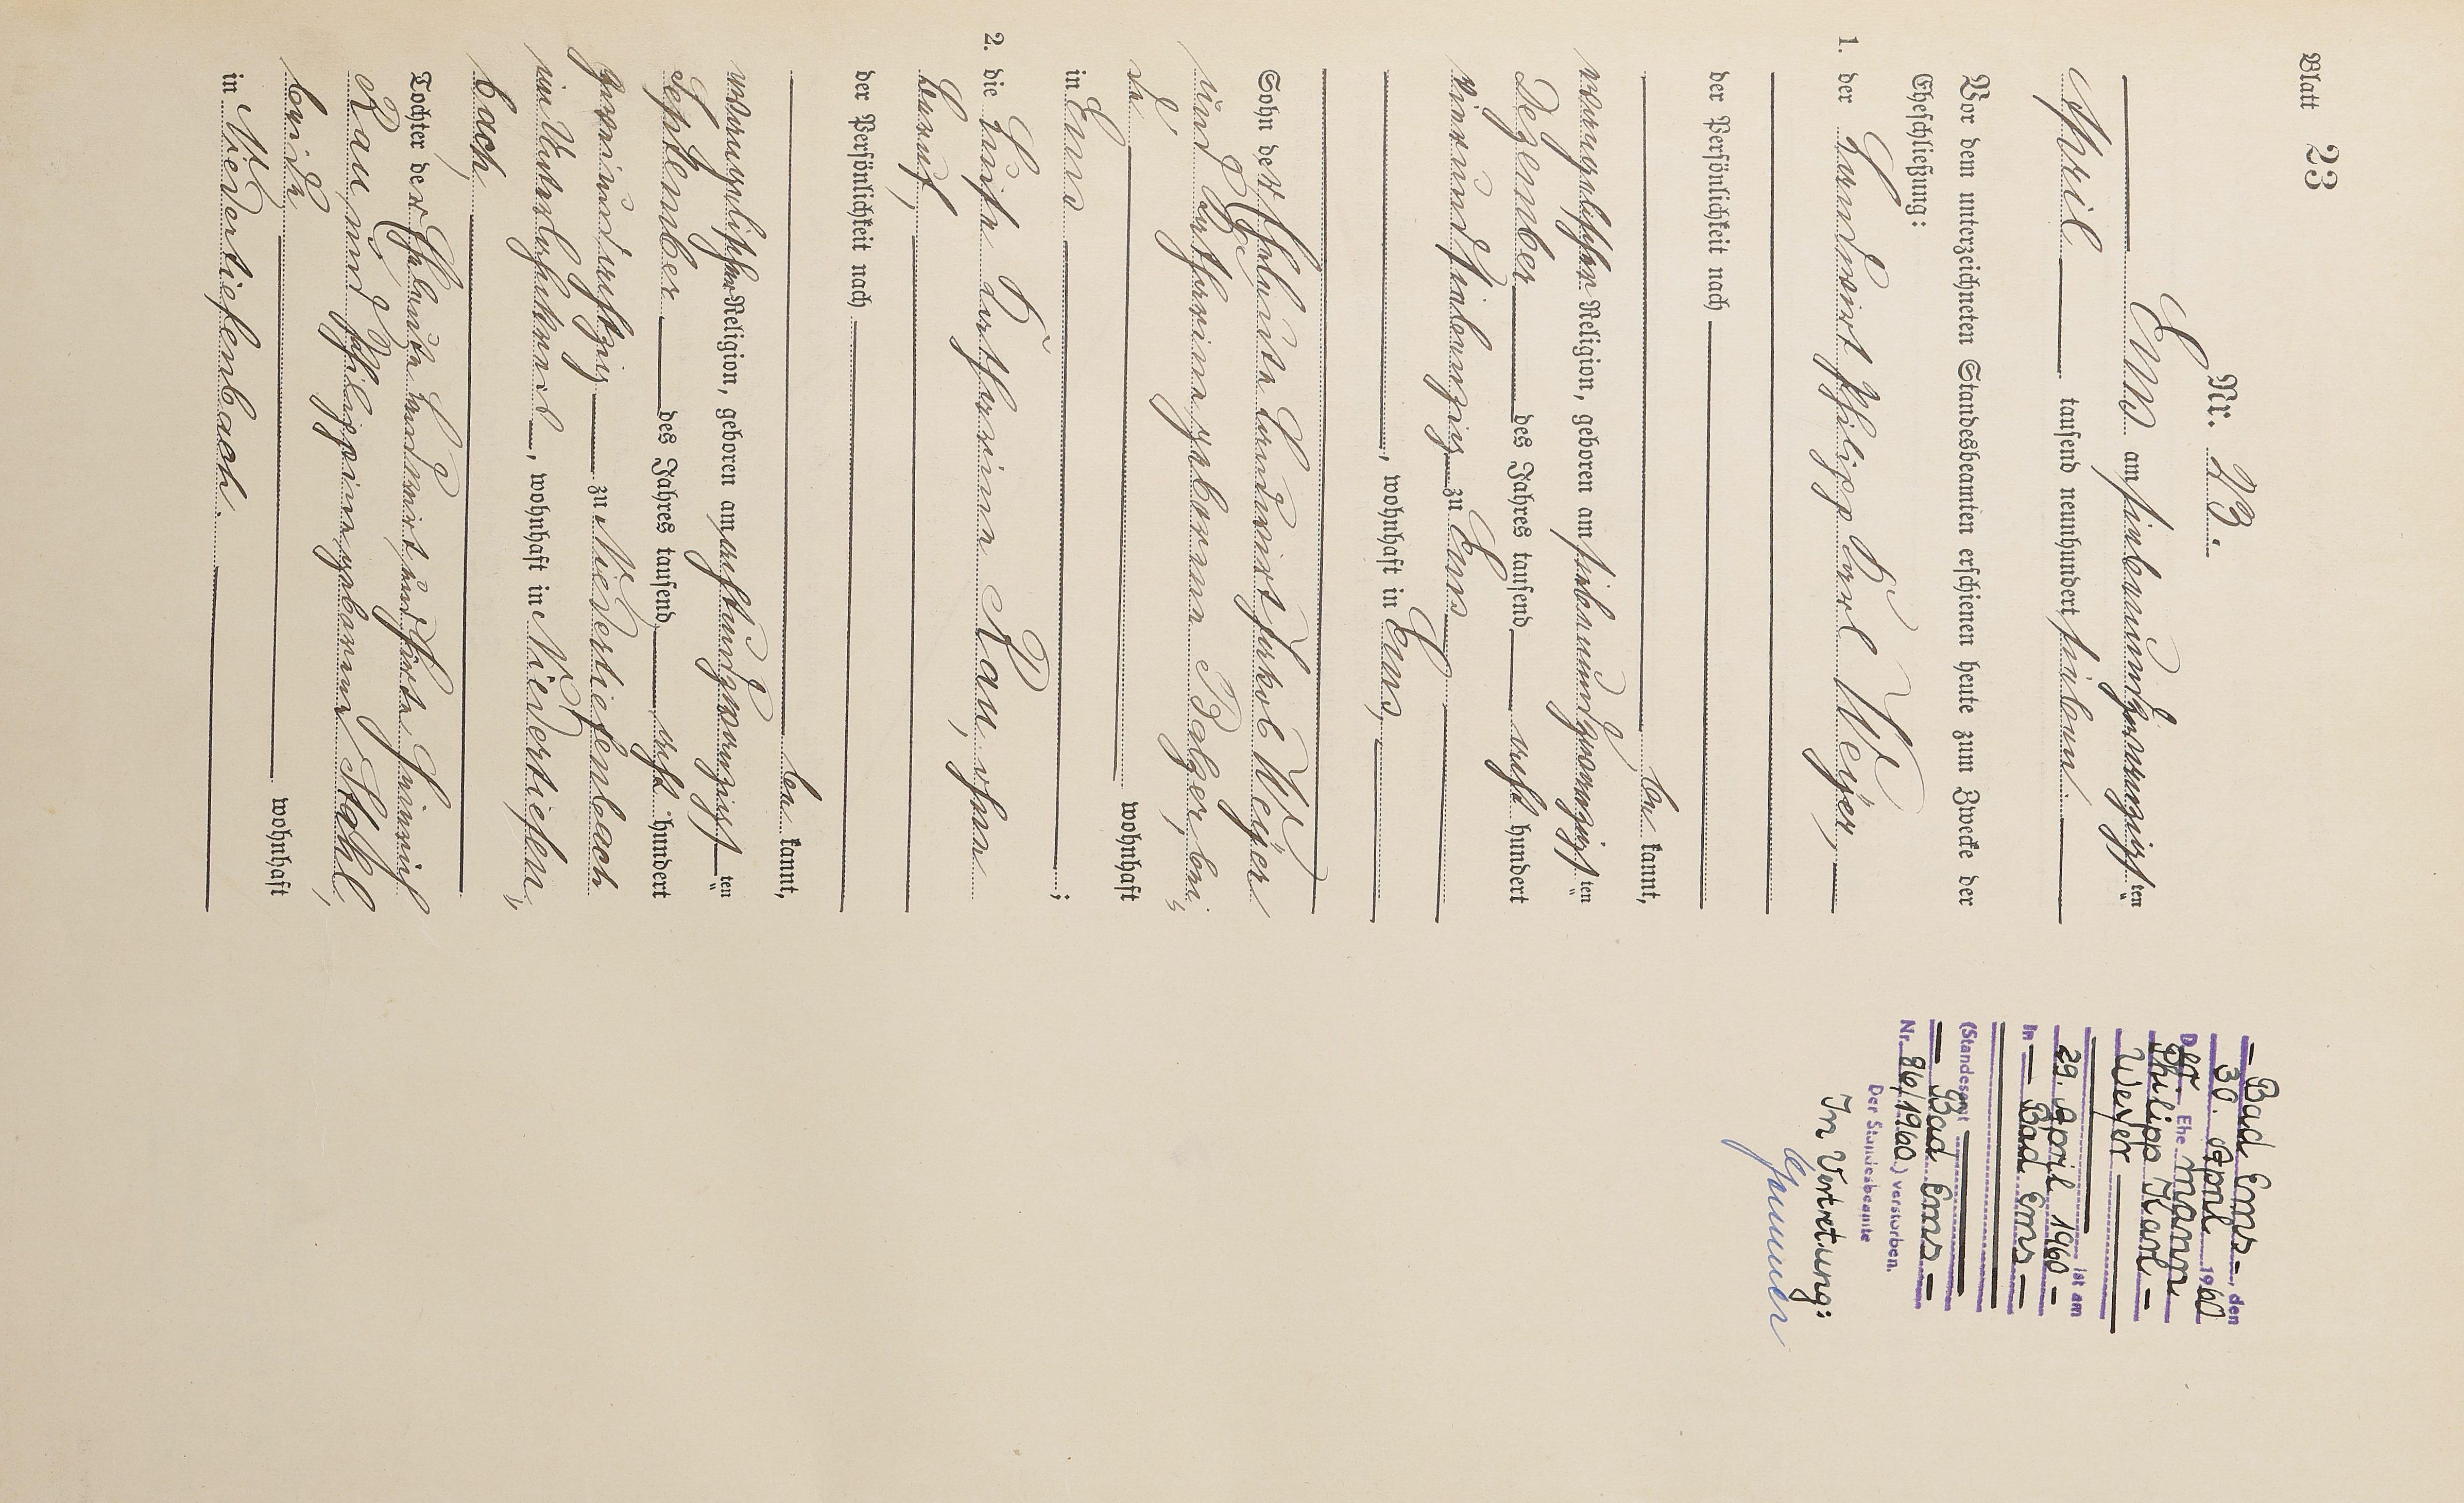 Blatt 23
Nr. 23.
Ems am siebenundzwanzigsten
April tausend neunhundert sieben.
Vor dem unterzeichneten Standesbeamten erschienen heute zum Zwecke der
Eheschließung:
1. der Landwirt Philipp Karl Weyer,
der Persönlichkeit nach
be kannt,
evangelischer Religion, geboren am siebenundzwanzigsten
Dezember des Jahres tausend acht hundert
vierundsiebenzig zu Ems
, wohnhaft in Ems,
Sohn der Eheleute Landwirt Jakob Weyer
und Katharina geborene Balzer, bei-
de wohnhaft
in Ems ;
2. die Luise Katharina Rau, ohne
Beruf,
der Persönlichkeit nach
be kannt,
evangelischer Religion, geboren am achtundzwanzigsten
September des Jahres tausend acht hundert
zu Niedertiefenbach
im Unterlahnkreis, wohnhaft in Niedertiefen-
bach,
Tochter der Eheleute Landwirt und Heinrich
Rau und Philippine geborene Stahl,
beide wohnhaft
in Niedertiefenbach.
Bad Ems, den
30. April 1960
Der Ehemann
Philipp Karl
Weyer
ist am
29. April 1960
in Bad Ems
(Standesamt
Bad Ems
Nr. 86/1960.) verstorben.
Der Standesbeamte
In Vertretung: